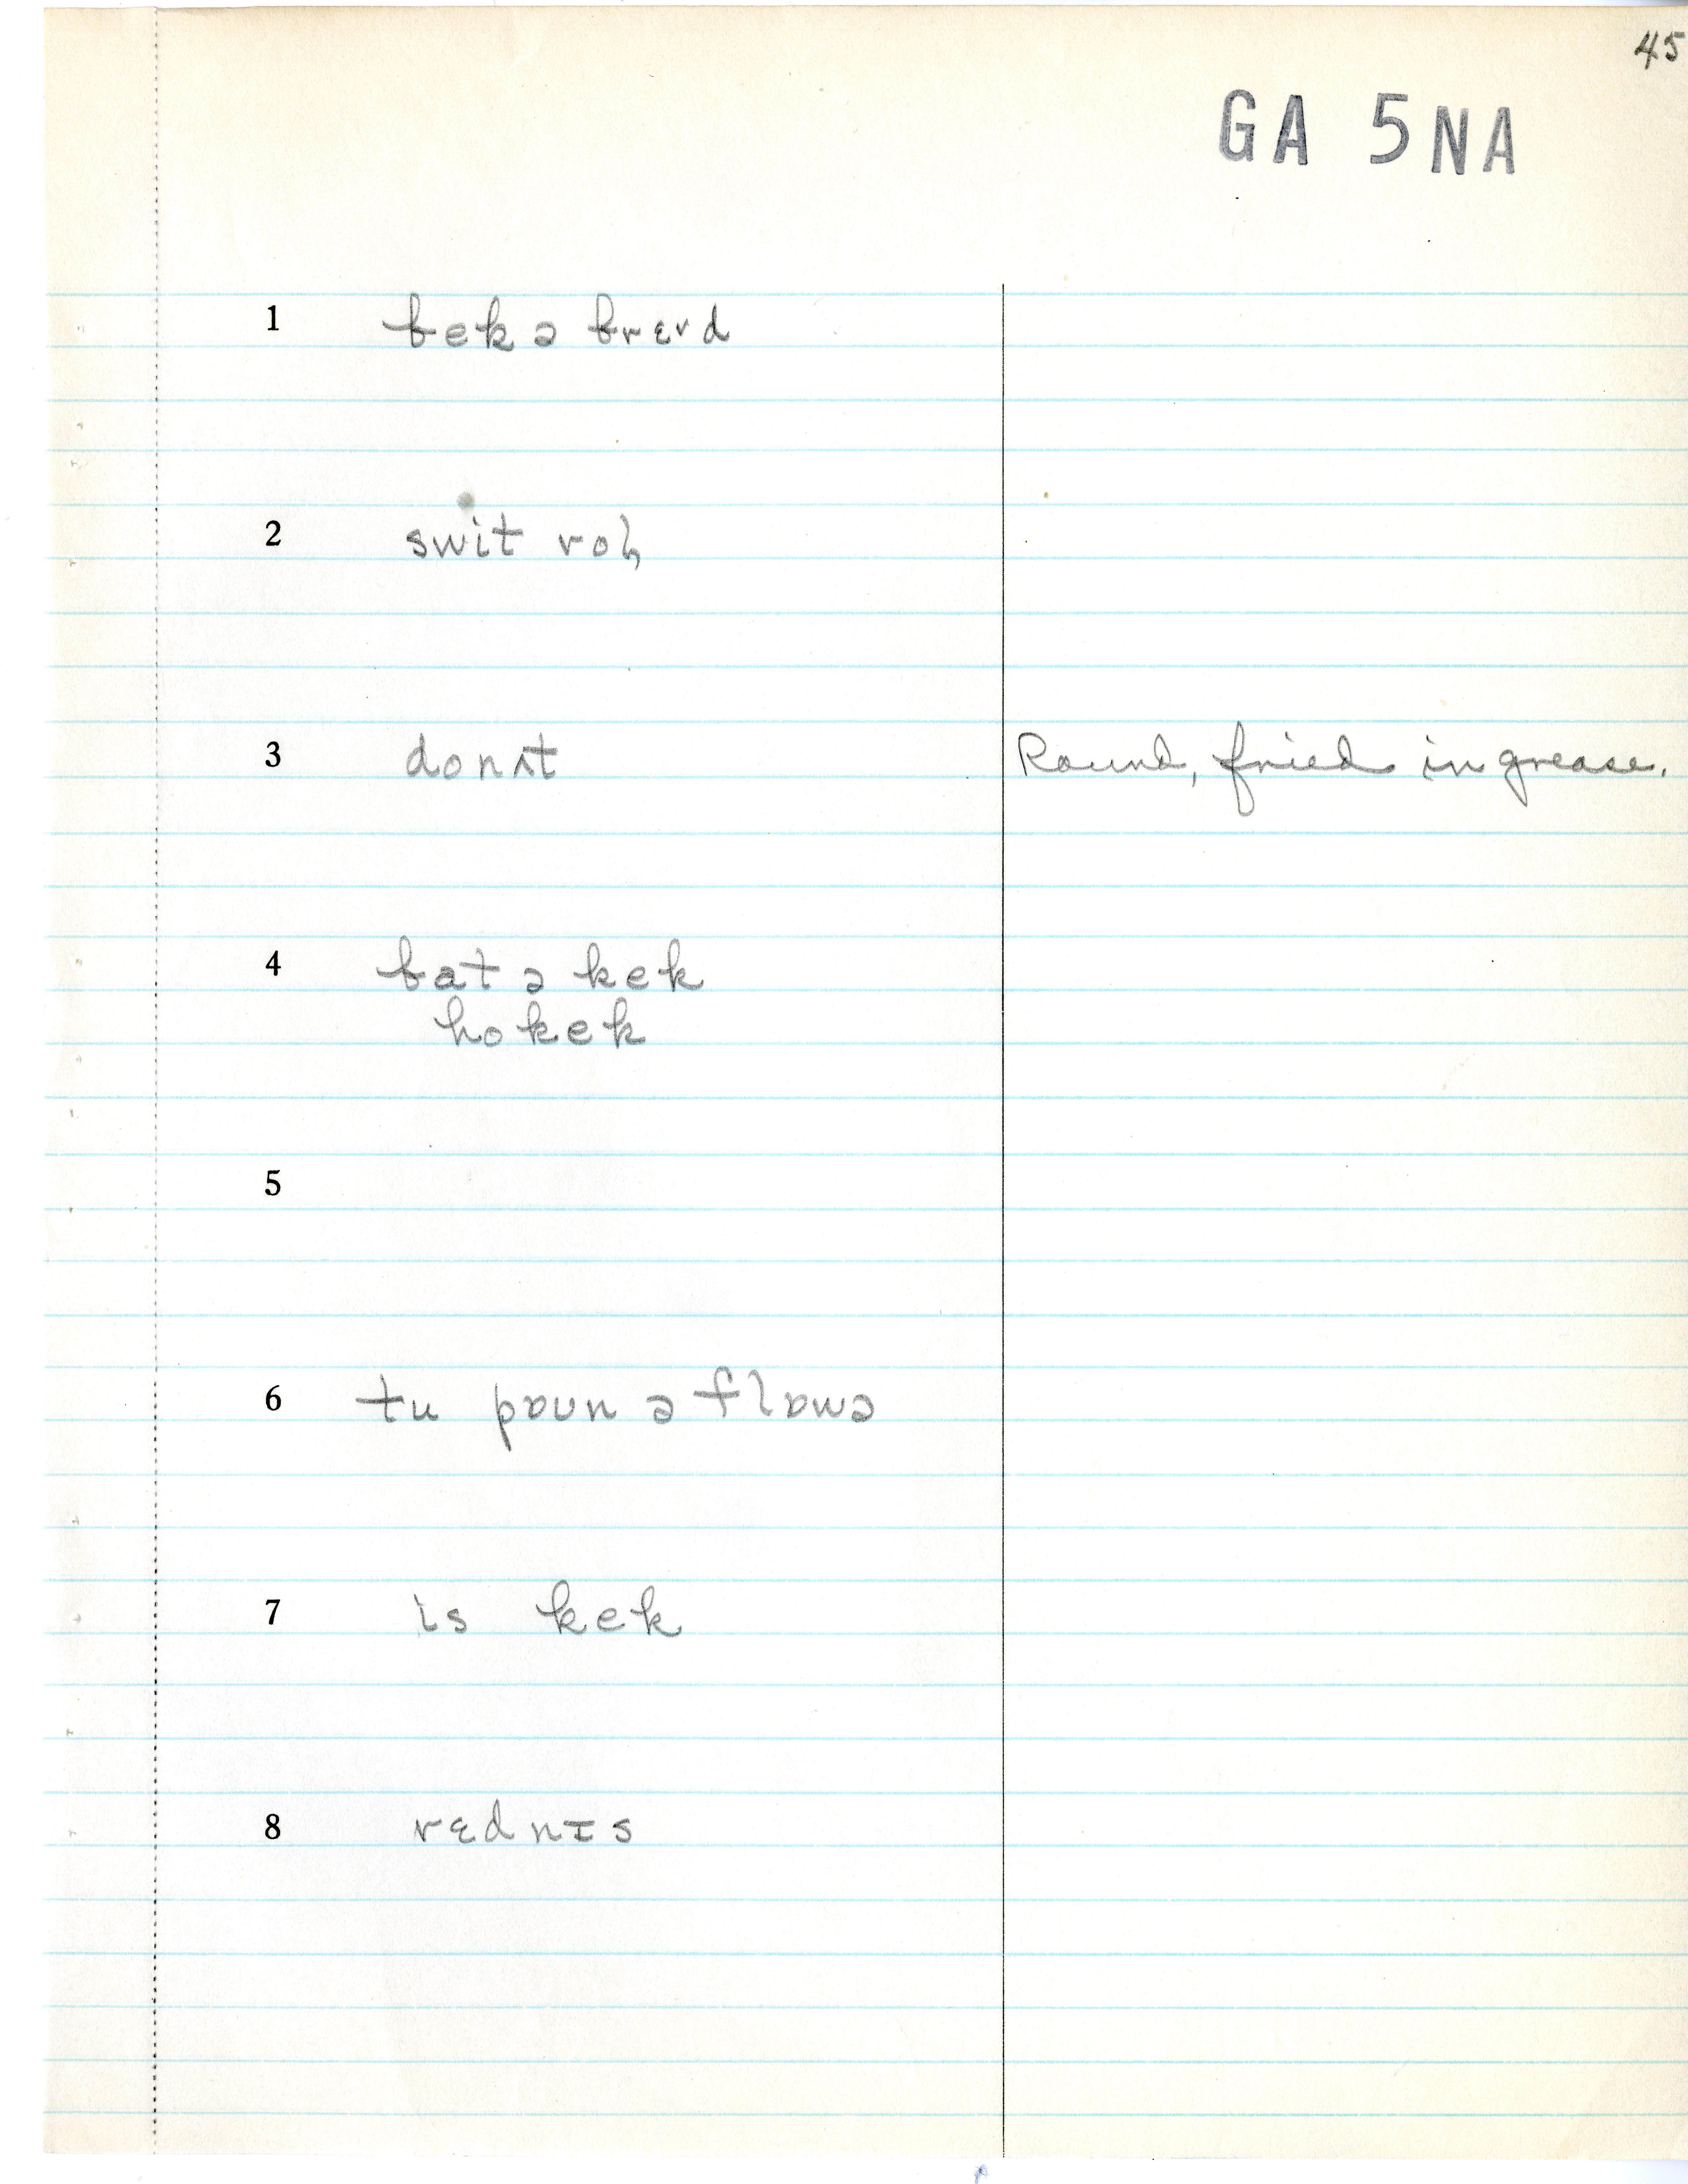 45
GA 5NA
1 bek ə brɛvd
2 swit rol̡
3 donʌt Round, fried in grease.
4 bat ə kek
hokek
5
6 tu pɒun ə flɒwə
7 is kek
8 rɛdnɪs